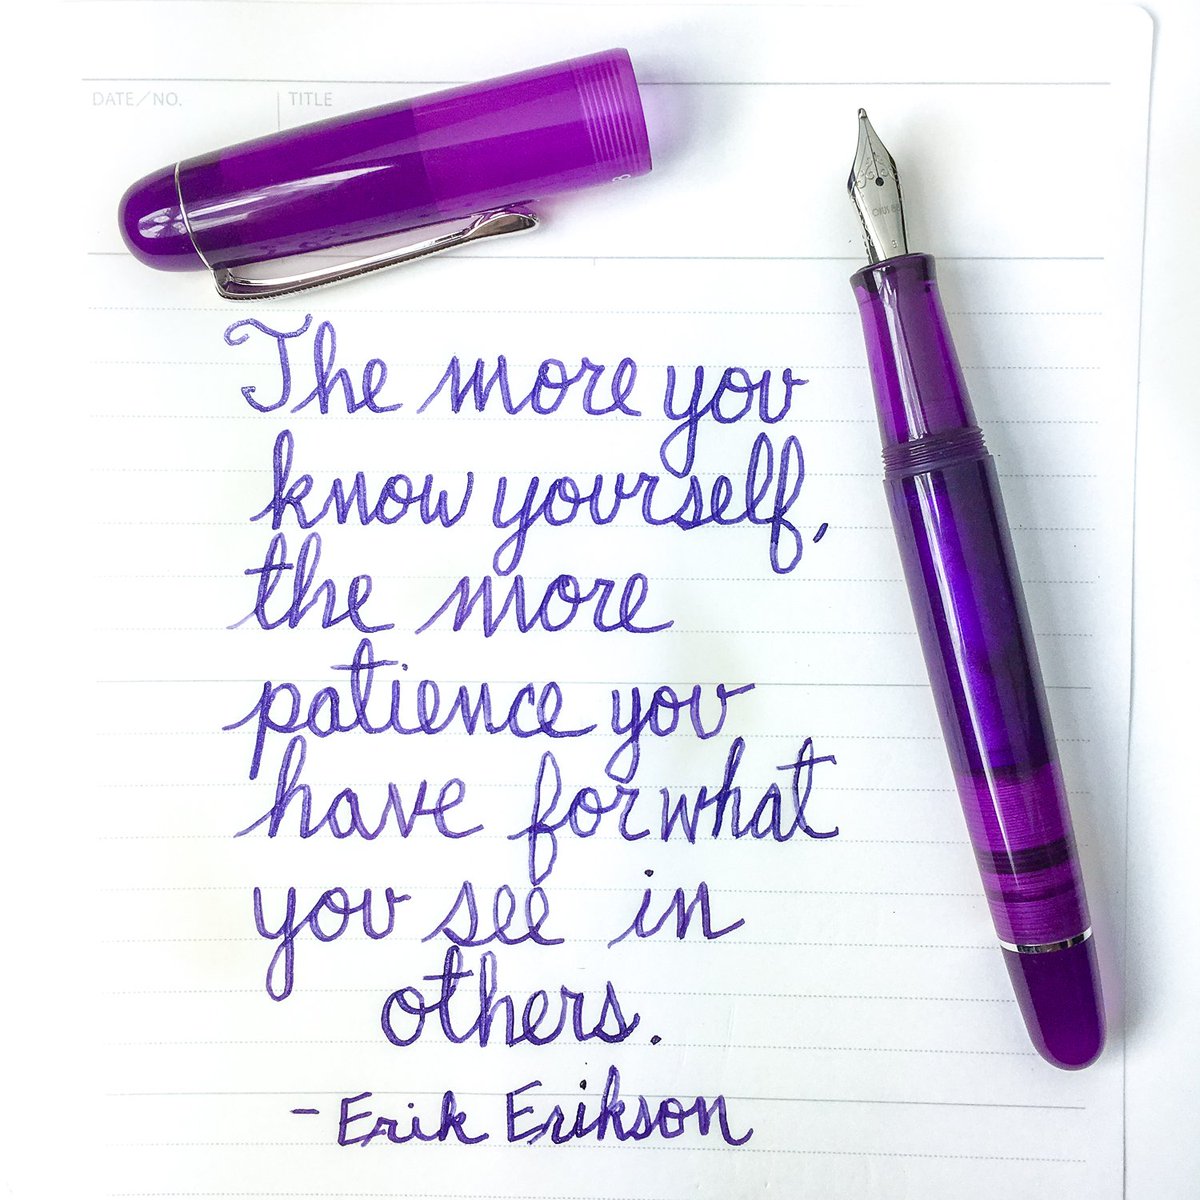 DATE/NO. TITLE
The more you
know yourself,
the more
patience you
have for what
you see in
others.
- Erik Erikson